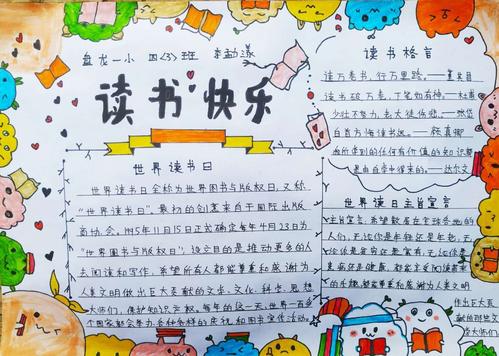 盘龙一小 四〈3〉班 李勐漾
读书快乐
世界读书日
世界读书日全称为世界图书与版权日,又称
“世界图书日”。最初的创意来自于国际出版
商协会。1995年11月15日正式确定每年4月23日为
“世界图书与版权日”,设立目的是推动更多的人
去阅读和写作,希望所有人都能尊重和感谢为
人类文明做出巨大贡献的文学,文化,科学,思想
大师们,保护知识产权。每年的这一天,世界一百多
个国家都会举办各种各样的庆祝和图书宣传活动。
读书格言
读万卷书,行万里路。——董其昌
读书破万卷,下笔如有神。——杜甫
少壮不努力,老大徒伤悲。
白首方悔读书迟。——颜真卿
我所学到的任何有价值的知识都
是由自学中得来的。——达尔文
世界读书日主旨宣言
主旨宣言:希望散居在全球各地的
人们,无论你是年轻还是年老,无
论你是贫穷还是富有,无论你是
患病还是健康,都能享受阅读带来
的乐趣,都能尊重和感谢为人类文明
作出巨大
贡献的
大师们